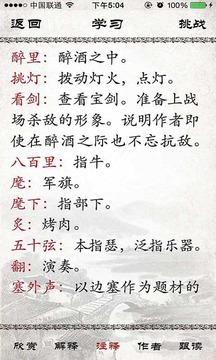 中国联通 下午5:04 100%
返回 学习 挑战
醉里：醉酒之中。
挑灯：拨动灯火，点灯。
看剑：查看宝剑。准备上战
场杀敌的形象。说明作者即
使在醉酒之际也不忘抗敌。
八百里：指牛。
麾：军旗。
麾下：指部下。
炙：烤肉。
五十弦：本指瑟，泛指乐器。
翻：演奏。
塞外声：以边塞作为题材的
欣赏 解释 注释 作者 跟读